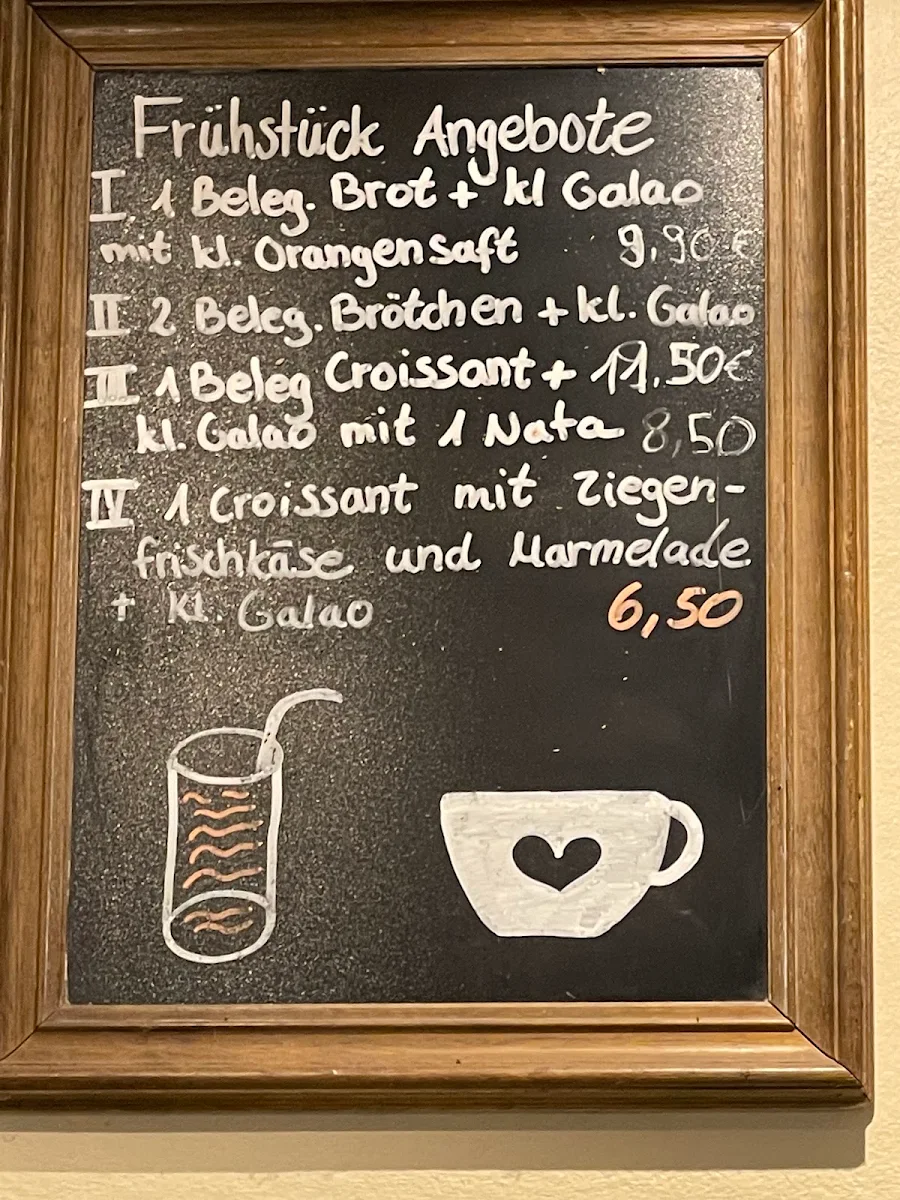 Frühstück Angebote
I. 1 Beleg. Brot + kl Galao
mit kl. Orangensaft 9,90 €
II 2 Beleg. Brötchen + kl. Galao
III 1 Beleg Croissant + 11,50€
kl. Galao mit 1 Nata 8,50
IV 1 Croissant mit Ziegen-
frischkäse und Marmelade
+ Kl. Galao 6,50